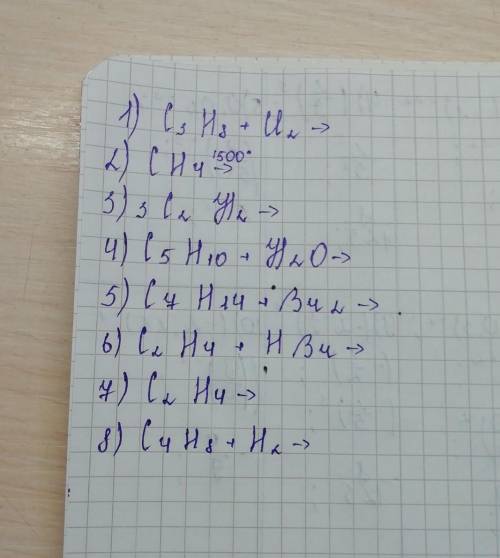 1) C₃ H₈ + Cl₂ →
2) CH₄ 1500° →
3) 3 C₂ H₂ →
4) C₅ H₁₀ + H₂O →
5) C₇ H₁₄ + Br₂ →
6) C₂ H₄ + H Br →
7) C₂ H₄ →
8) C₄ H₈ + H₂ →